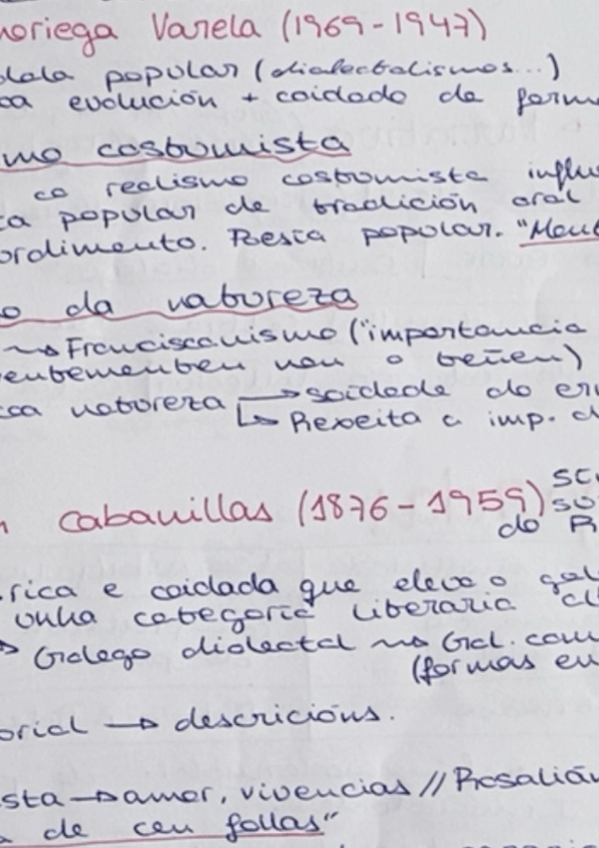 noriega Varela (1969-1947)
popular (dialectalismos...)
evolución + coidado da forma
costumista
ca realismo costumista influ
popular de tradición oral
ordimento. Poesía popular. "Mont
da natureza
→ Franciscanismo ("importancia
non o teñen)
natureza → soidade do er
↳ Rexeita a imp. d
Cabanillas (1876-1959)
do
rica e coidada que eleva o gal
unha categoría literaria cl
Galego dialectal → Gal. com
(formas en
orial → descricións.
sta → amor, vivencias // Rosalián
de ceu follas"